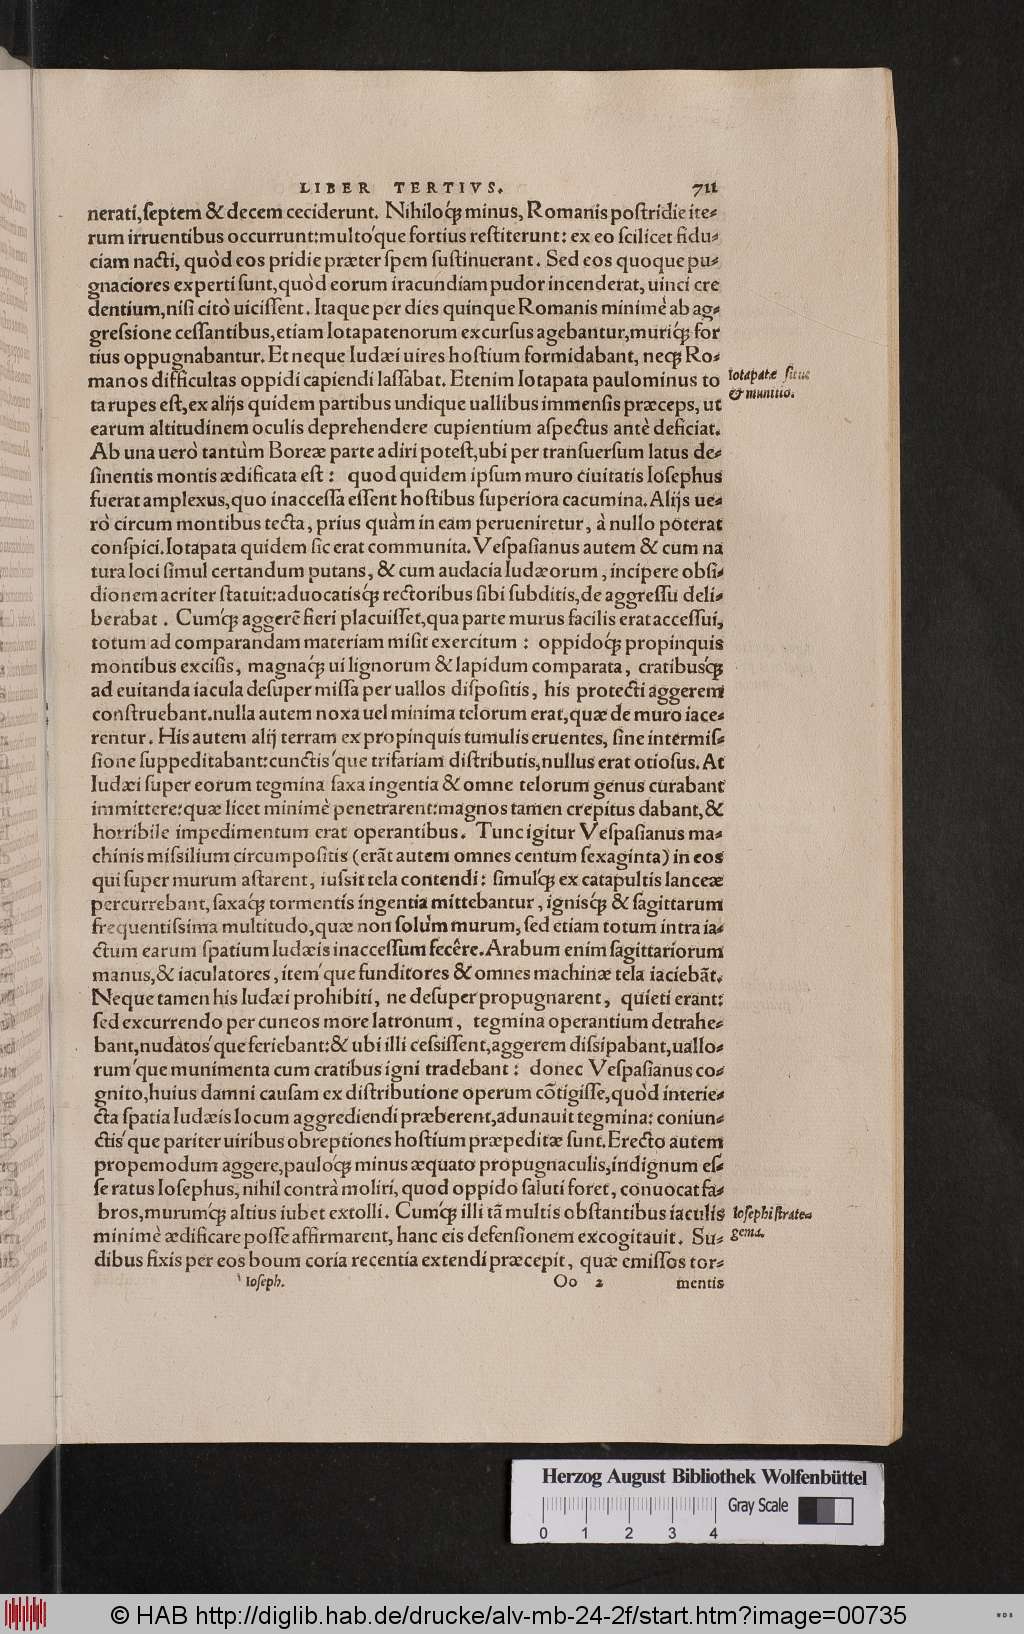 LIBER TERTIVS. 711
nerati, ſeptem & decem ceciderunt. Nihiloq́; minus, Romanis poſtridie ite-
rum irruentibus occurrunt: multóque fortius reſtiterunt: ex eo ſcilicet fidu-
ciam nacti, quòd eos pridie præter ſpem ſuſtinuerant. Sed eos quoque pu-
gnaciores experti ſunt, quòd eorum iracundiam pudor incenderat, uinci cre
dentium, niſi citò uiciſſent. Itaque per dies quinque Romanis minimè ab ag-
greſsione ceſſantibus, etiam Iotapatenorum excurſus agebantur, muriq́; for
tius oppugnabantur. Et neque Iudæi uires hoſtium formidabant, neq; Ro-
manos difficultas oppidi capiendi laſſabat. Etenim Iotapata paulominus to
ta rupes eſt, ex alijs quidem partibus undique uallibus immenſis præceps, ut
earum altitudinem oculis deprehendere cupientium aſpectus antè deficiat.
Iotapatæ ſitus
& munitio.
Ab una uerò tantùm Boreæ parte adiri poteſt, ubi per tranſuerſum latus de-
ſinentis montis ædificata eſt: quod quidem ipſum muro ciuitatis Ioſephus
fuerat amplexus, quo inacceſſa eſſent hoſtibus ſuperiora cacumina. Alijs ue-
rò circum montibus tecta, prius quàm in eam perueniretur, à nullo poterat
conſpici. Iotapata quidem ſic erat communita. Veſpaſianus autem & cum na
tura loci ſimul certandum putans, & cum audacia Iudæorum, incipere obſi-
dionem acriter ſtatuit: aduocatisq́; rectoribus ſibi ſubditis, de aggreſſu deli-
berabat. Cumq́; aggerē fieri placuiſſet, qua parte murus facilis erat acceſſui,
totum ad comparandam materiam miſit exercitum: oppidoq́; propinquis
montibus exciſis, magnaq́; ui lignorum & lapidum comparata, cratibusq́;
ad euitanda iacula deſuper miſſa per uallos diſpoſitis, his protecti aggerem
conſtruebant. nulla autem noxa uel minima telorum erat, quæ de muro iace-
rentur. His autem alij terram ex propinquis tumulis eruentes, ſine intermiſ-
ſione ſuppeditabant: cunctis'que trifariam diſtributis, nullus erat otioſus. At
Iudæi ſuper eorum tegmina ſaxa ingentia & omne telorum genus curabant
immittere: quæ licet minimè penetrarent: magnos tamen crepitus dabant, &
horribile impedimentum erat operantibus. Tunc igitur Veſpaſianus ma-
chinis miſsilium circumpoſitis (erāt autem omnes centum ſexaginta) in eos
qui ſuper murum aſtarent, iuſsit tela contendi: ſimulq́; ex catapultis lanceæ
percurrebant, ſaxaq́; tormentis ingentia mittebantur, ignisq́; & ſagittarum
frequentiſsima multitudo, quæ non ſolùm murum, ſed etiam totum intra ia-
ctum earum ſpatium Iudæis inacceſſum fecêre. Arabum enim ſagittariorum
manus, & iaculatores, item'que funditores & omnes machinæ tela iaciebāt.
Neque tamen his Iudæi prohibiti, ne deſuper propugnarent, quieti erant:
ſed excurrendo per cuneos more latronum, tegmina operantium detrahe-
bant, nudatos'que feriebant: & ubi illi ceſsiſſent, aggerem diſsipabant, uallo-
rum'que munimenta cum cratibus igni tradebant: donec Veſpaſianus co-
gnito, huius damni cauſam ex diſtributione operum cōtigiſſe, quòd interie-
cta ſpatia Iudæis locum aggrediendi præberent, adunauit tegmina: coniun-
ctis'que pariter uiribus obreptiones hoſtium præpeditæ ſunt. Erecto autem
propemodum aggere, pauloq́; minus æquato propugnaculis, indignum eſ-
ſe ratus Ioſephus, nihil contrà moliri, quod oppido ſaluti foret, conuocat fa-
bros, murumq́; altius iubet extolli. Cumq́; illi tā multis obſtantibus iaculis
minimè ædificare poſſe affirmarent, hanc eis defenſionem excogitauit. Su-
dibus fixis per eos boum coria recentia extendi præcepit, quæ emiſſos tor-
Ioſephi ſtrate-
gema.
Ioſeph. Oo 2 mentis
Herzog August Bibliothek Wolfenbüttel
Gray Scale
0 1 2 3 4
© HAB http://diglib.hab.de/drucke/alv-mb-24-2f/start.htm?image=00735